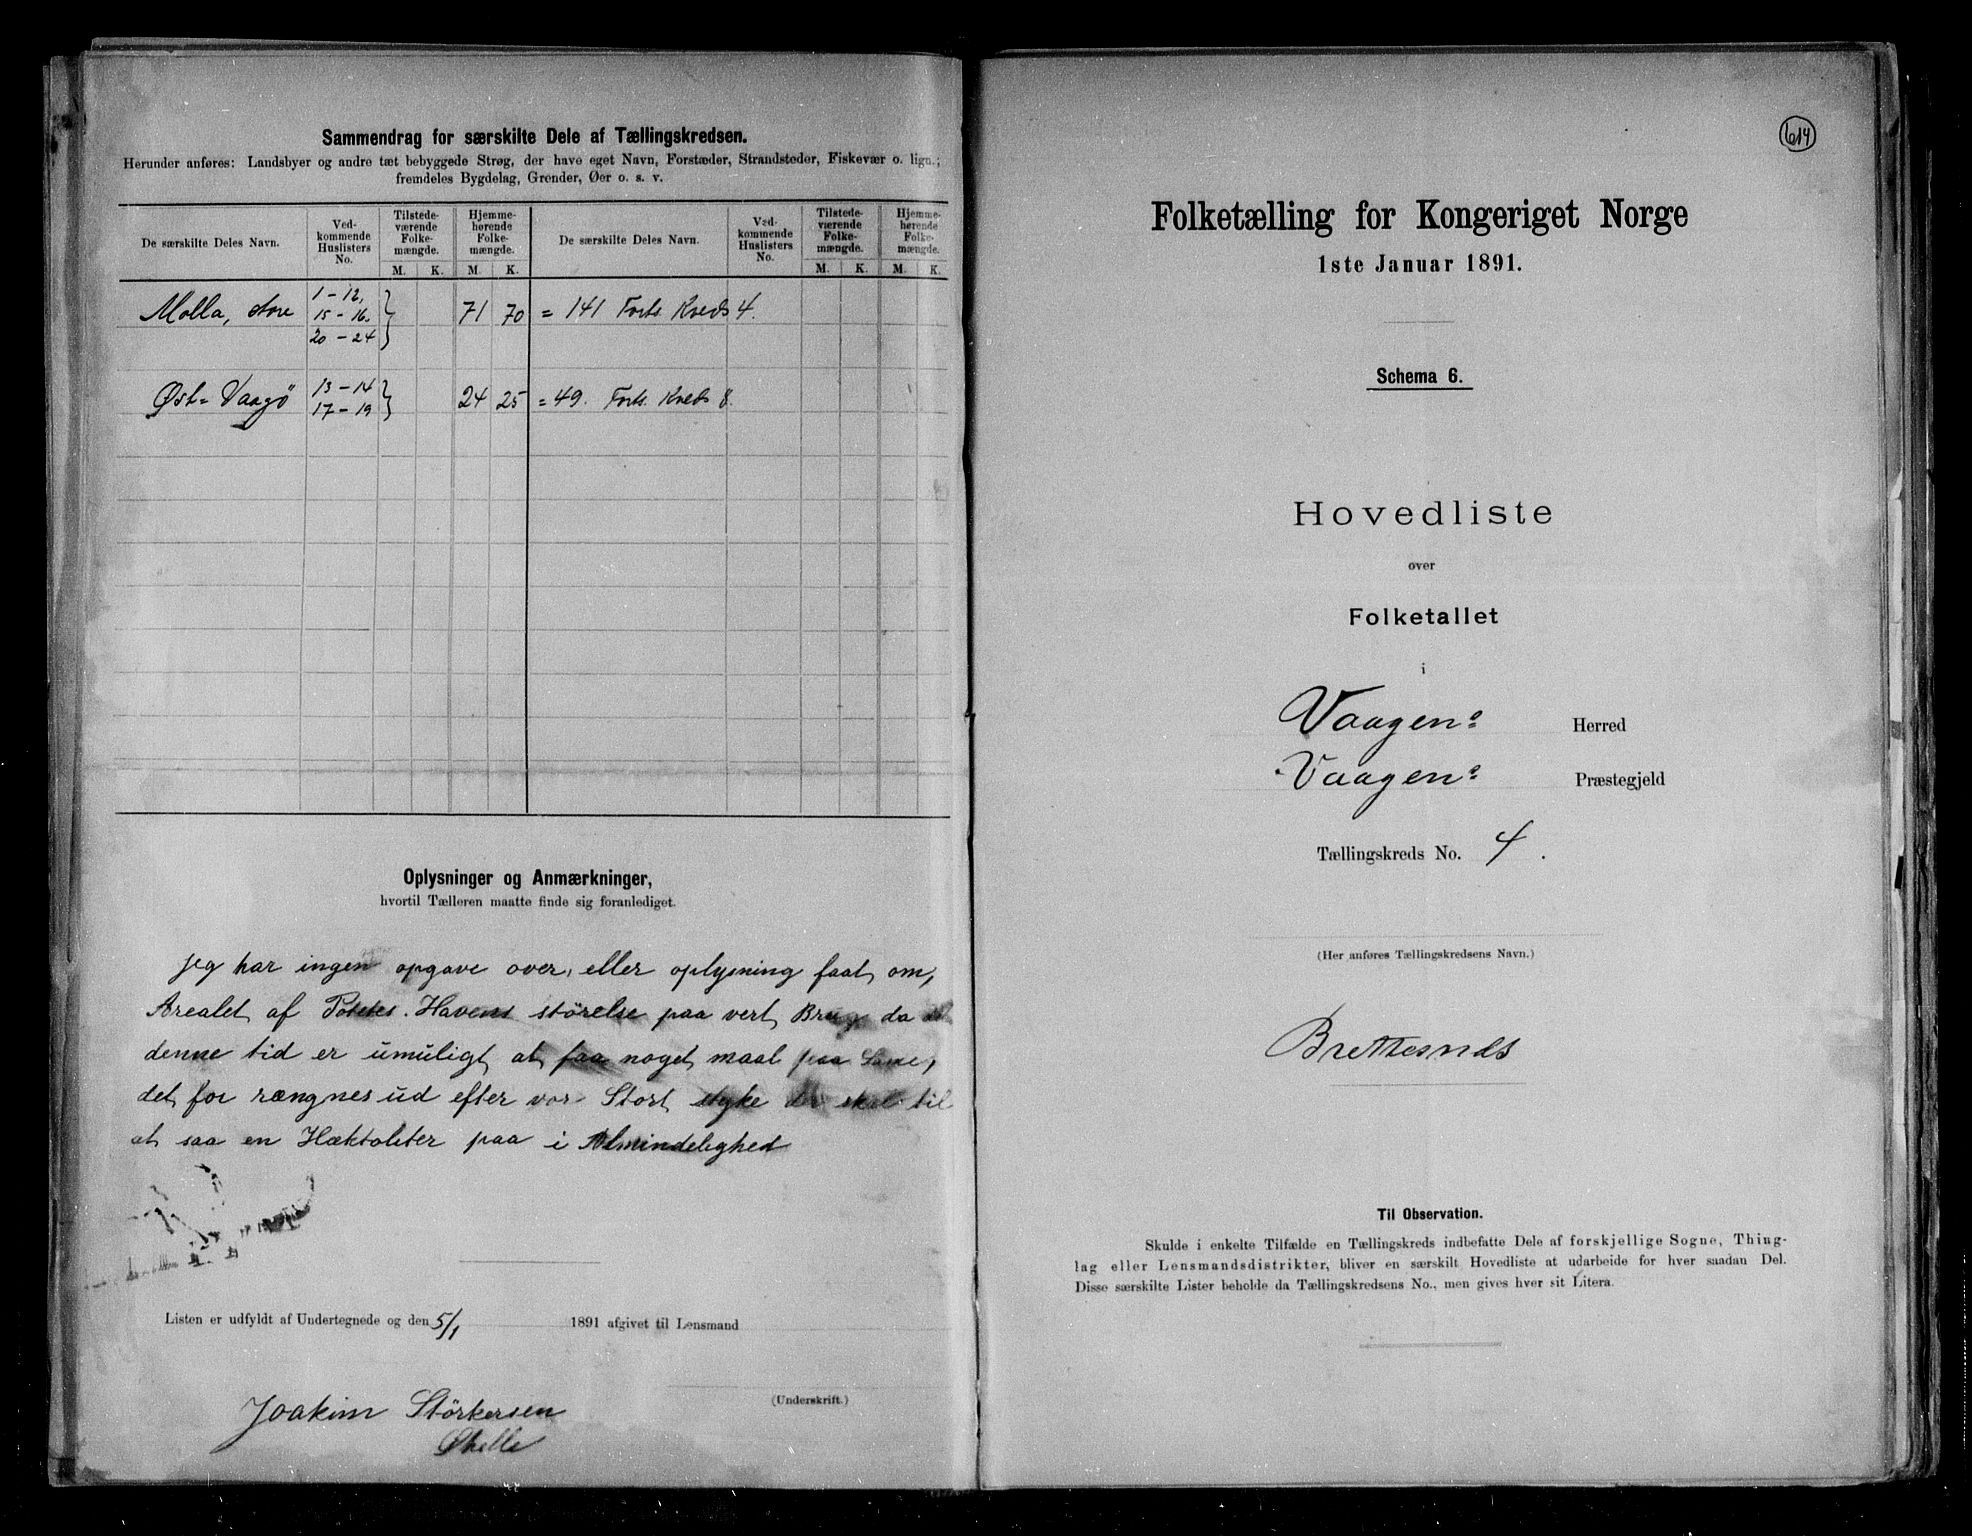 Sammendrag for særskilte Dele af Tællingskredsen.
Herunder anføres: Landsbyer og andre tæt bebyggede Strøg, der have eget Navn, Forstæder, Strandsteder, Fiskevær o. lign.;
fremdeles Bygdelag, Grender, Øer o. s. v.
De særskilte Deles Navn. Ved-kommende Huslisters No. Tilstede-værende Folke-mængde. Hjemme-hørende Folke-mængde. De særskilte Deles Navn. Ved-kommende Huslisters No. Tilstede-værende Folke-mængde. Hjemme-hørende Folke-mængde.
M. K. M. K. M. K. M. K.
Molla, store 1-12, 15-16. 20-24 } 71 70 = 141 Forts. Kreds 4.
Øst-Vaagö 13-14 17-19 } 24 25 = 49. Forts. Kreds 8.
Oplysninger og Anmærkninger,
hvortil Tælleren maatte finde sig foranlediget.
jeg har ingen opgave over, eller oplysning faat om,
Arealet af Potetes. Havens störelse paa vert Brug da
denne tid er umuligt at faa noget maal paa Same,
det for rængnes ud efter vor Stort styke der skal til
at saa en Hæktoleter paa i Almindelighed
Listen er udfyldt af Undertegnede og den 5/1 1891 afgivet til Lensmand
(Underskrift.)
Joakim Störkersen
Skelle
614
Folketælling for Kongeriget Norge
1ste Januar 1891.
Schema 6.
Hovedliste
over
Folketallet
i
Vaagens Herred
Vaagens Præstegjeld
Tællingskreds No. 4.
(Her anføres Tællingskredsens Navn.)
Brettesnæs
Til Observation.
Skulde i enkelte Tilfælde en Tællingskreds indbefatte Dele af forskjellige Sogne, Thing-
lag eller Lensmandsdistrikter, bliver en særskilt Hovedliste at udarbeide for hver saadan Del.
Disse særskilte Lister beholde da Tællingskredsens No., men gives hver sit Litera.